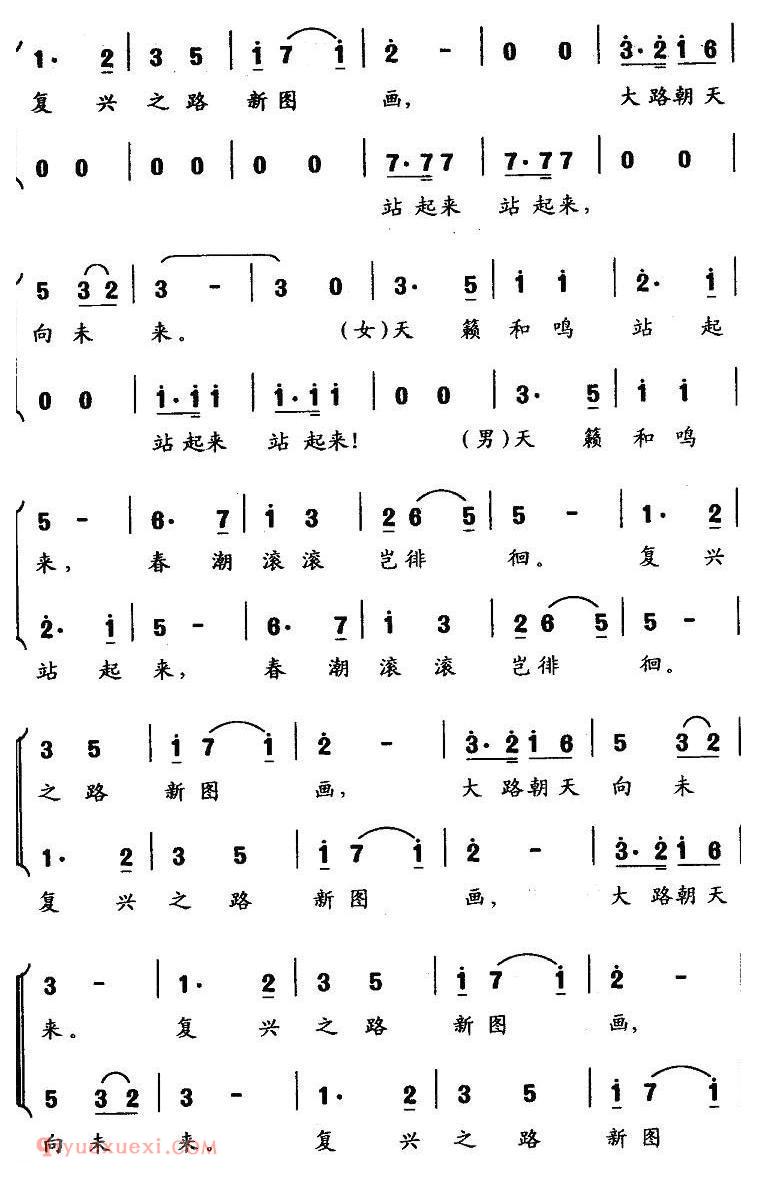 1· 2 | 3 5 | i 7 i | 2 - | 0 0 | 3·2 i 6 |
复 兴 之 路 新 图 画, 大 路 朝 天
0 0 | 0 0 | 0 0 | 7·7 7 | 7·7 7 | 0 0 |
站 起 来 站 起 来,
5 3 2 | 3 - | 3 0 | 3· 5 | i i | 2· i |
向 未 来。 (女)天 籁 和 鸣 站 起
0 0 | i·i i | i·i i | 0 0 | 3· 5 | i i |
站 起 来 站 起 来! (男)天 籁 和 鸣
5 - | 6· 7 | i 3 | 2 6 5 | 5 - | 1· 2 |
来, 春 潮 滚 滚 岂 徘 徊。 复 兴
2· i | 5 - | 6· 7 | i 3 | 2 6 5 | 5 - |
站 起 来, 春 潮 滚 滚 岂 徘 徊。
3 5 | i 7 i | 2 - | 3·2 i 6 | 5 3 2 |
之 路 新 图 画, 大 路 朝 天 向 未
1· 2 | 3 5 | i 7 i | 2 - | 3·2 i 6 |
复 兴 之 路 新 图 画, 大 路 朝 天
3 - | 1· 2 | 3 5 | i 7 i | 2 - |
来。 复 兴 之 路 新 图 画,
5 3 2 | 3 - | 1· 2 | 3 5 | i 7 i |
向 未 来。 复 兴 之 路 新 图
yuexuexi.com